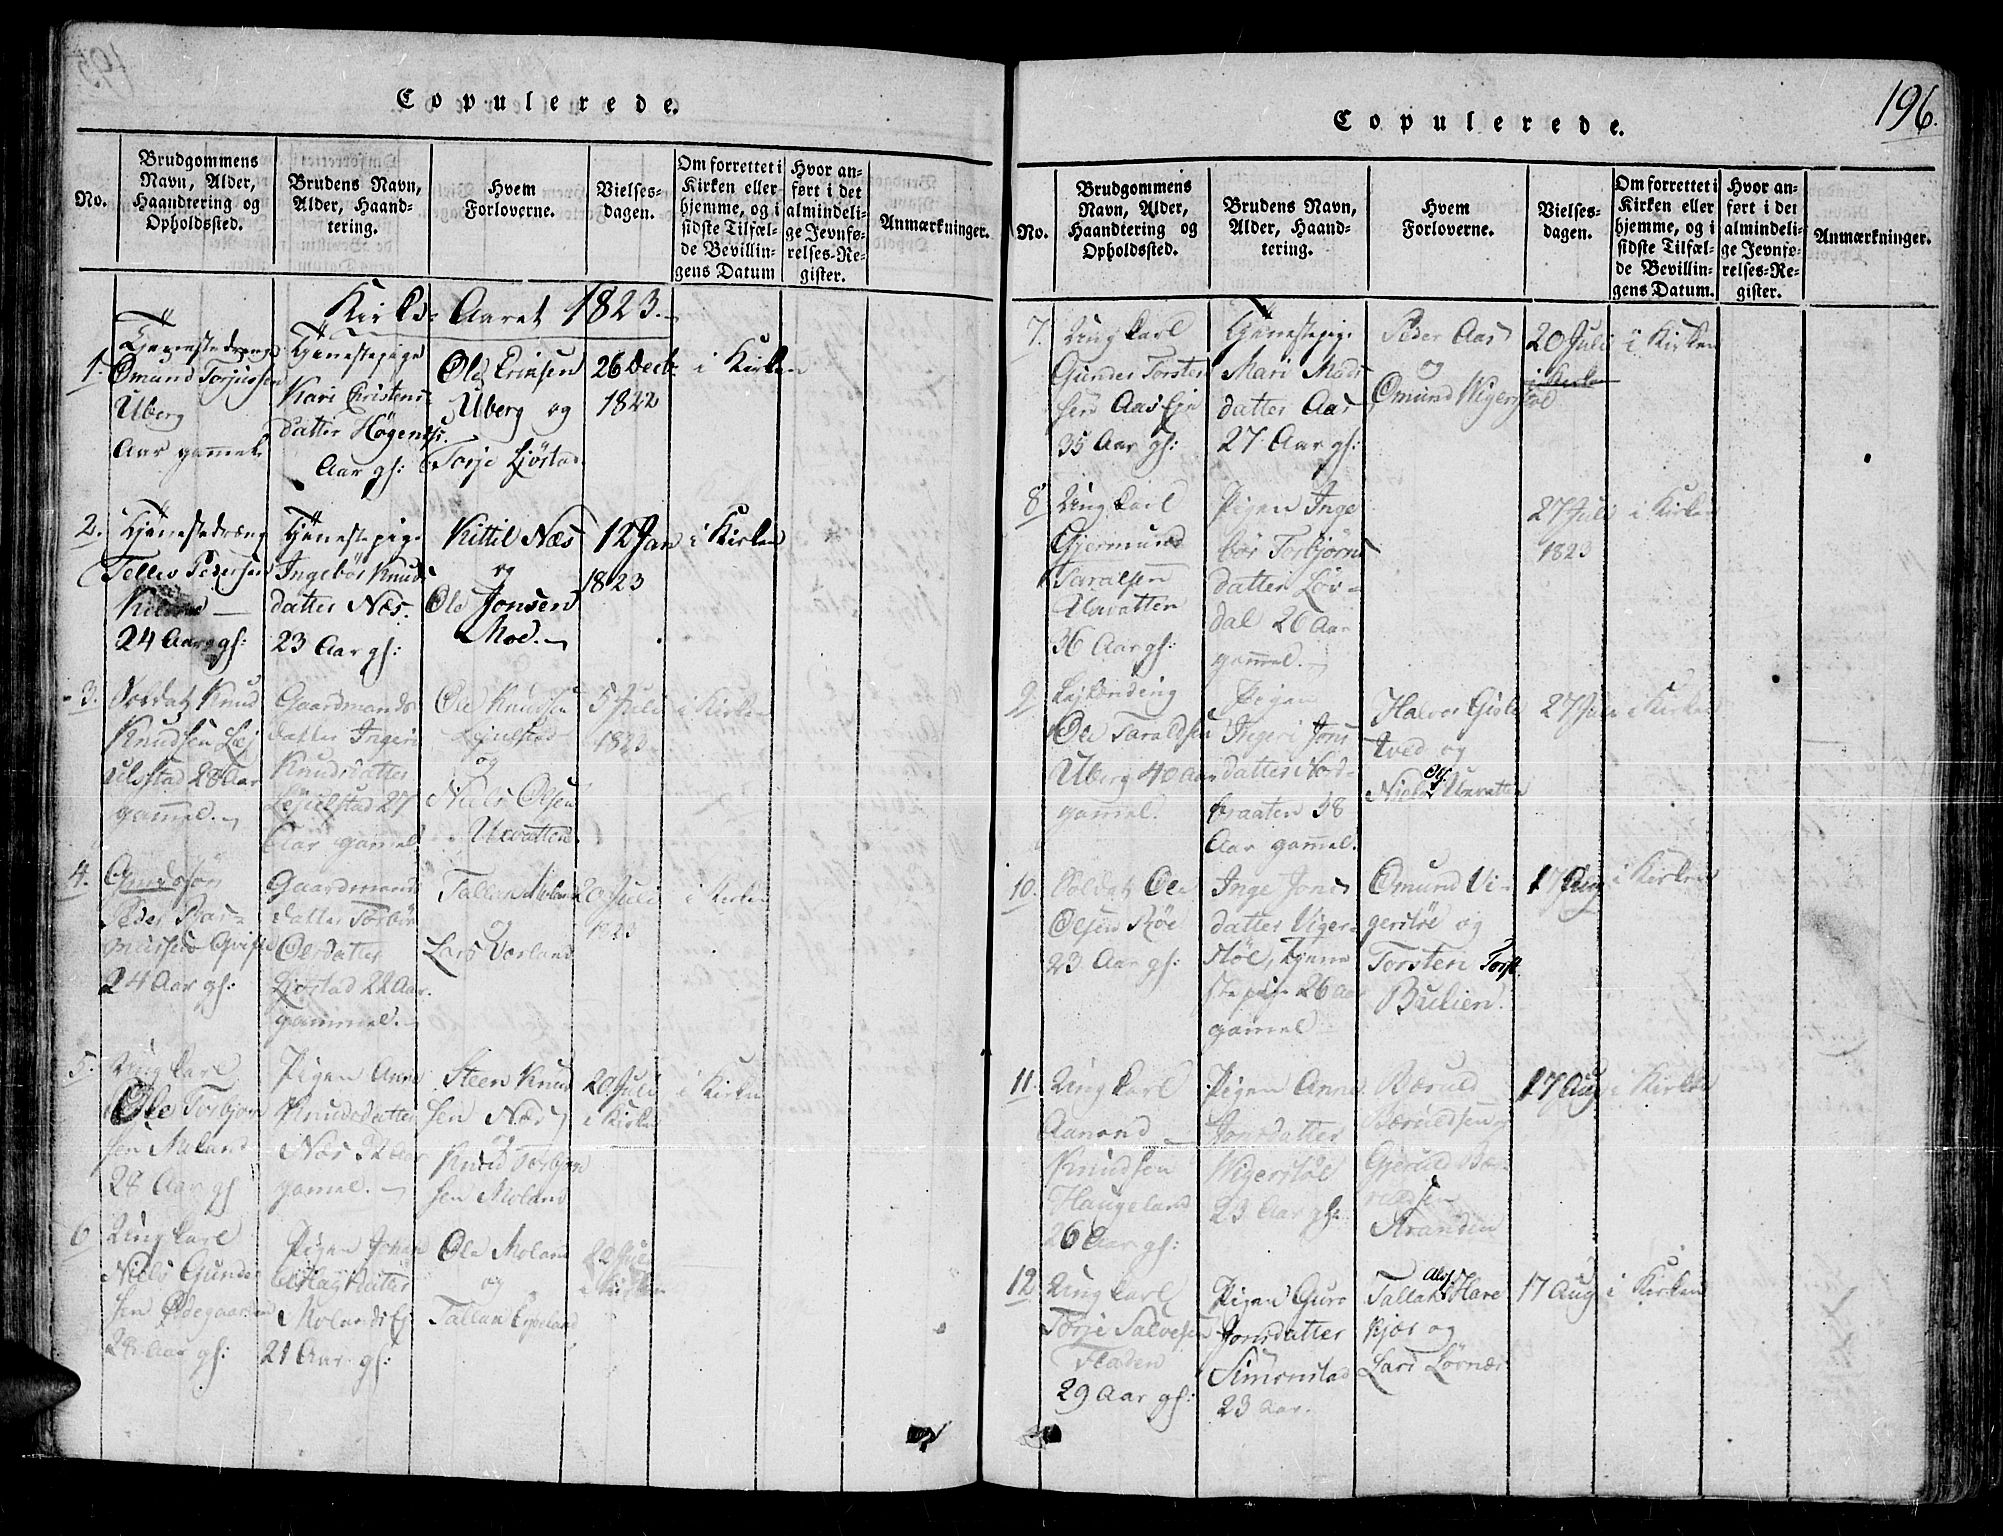 Copulerede.
No.
Brudgommens
Navn, Alder,
Haandtering og
Opholdssted.
Brudens Navn,
Alder, Haand-
tering.
Hvem
Forloverne.
Vielses-
dagen.
Om forrettet i
Kirken eller
hjemme, og i
sidste Tilfæl-
de Bevillin-
gens Datum
Hvor an-
ført i det
almindeli-
ge Jevnfø-
relses-Re-
gister.
Anmærkninger.
Kirke-Aaret 1823.
1.
Tjenestedreng
Omund Torjussen
Uberg
Aar gammel.
Tjenestepige
Kari Christens-
datter
Aar gl:
Ole
Uberg og
Torje Ljøstad
26 Decbr
1822
i Kirken
2.
Tjenestedreng
Tellev Pedersen
24 Aar gl:
Tjenestepige
Ingebør Knuds
datter Næs.
23 Aar gl:
Kittil Næs
og
Ole Jonsen
Moe.
12 Jan
1823
i Kirken
3.
Soldat Knud
Knudsen Lej
ulstad 28 Aar
gammel.
Gaardmands
datter Ingeri
Knudsdatter
Lejulstad 27
Aar gamel
Ole Knudsen
Lejulstad
og
Niels Olsen
Uevatten
5 Juli
1823
i Kirken
4.
Peder
24 Aar gl:
Gaardmands
datter Torbør
Olesdatter
Ljøstad 22 Aar
gammel.
Tallak Moland
og
Lars Værland
20 Juli
1823
i Kirken
5.
Ungkarl
Ole Torbjørn
sen Moland
28 Aar gl
Pigen Anne
Knudsdatter
Næs 32 Aar
gamel.
Steen Knud
sen Næs
og
Knud Torbjørn
sen Moland
20 Juli
i Kirken
i Kirken
6
Ungkarl
Niels Gunder
sen Ødegaarden
28 Aar gl:
Pigen Johan
Molands Ej
21 Aar gl:
Ole Moland
og
Tallak Espeland
20 Juli
i Kirken
196.
Copulerede.
No.
Brudgommens
Navn, Alder,
Haandtering og
Opholdssted.
Brudens Navn,
Alder, Haand-
tering.
Hvem
Forloverne.
Vielses-
dagen.
Om forrettet i
Kirken eller
hjemme, og i
sidste Tilfæl-
de Bevillin-
gens Datum.
Hvor an-
ført i det
almindeli-
ge Jevnfø-
relses-Re-
gister.
Anmærkninger.
7.
Ungkarl
Gunder Torsten
sen Aas Eje
35 Aar gl:
Tjenestepige
Mari Mads
datter Aas
27 Aar gl:
Peder Aas
og
Omund Wigerstøl
20 Juli
i Kirken
i Kirken
8
Ungkarl
Gjermund
Taralsen
Uevatten
36 Aar gl:
Pigen Inge
bør Torbjørns
datter Løv-
dal 26 Aar
gammel.
27 Juli
1823
i Kirken
9.
Lejlænding
Ole Taraldsen
Uberg 40 Aar
gammel.
Pigen
Ingeri Jons
datter Nord-
braaten 38
Aar gammel.
Halvor Gisle
tved og
Niels Ols. Uevatten
27 Juli
i Kirken
10.
Soldat Ole
Olsen Røe
23 Aar gl:
Inge Jons
datter Viger-
støl, Tjene
stepige 26 Aar
gamel
Omund Vi-
gerstøl og
Torsten Torst.
17 Aug
i Kirken
11.
Ungkarl
Aanond
Knudsen
Haugeland
26 Aar gl:
Pigen Anne
Jonsdatter
Wigerstøl
23 Aar gl:
Bæruld
Bæruldsen og
Gjeruld Bæ-
ruldsen
Stranden
17 Aug
i Kirken
12
Ungkarl
Torje Salvesen
Fladen
29 Aar gl:
Pigen Guro
Jonsdatter
Simonstad
23 Aar.
Tallak Alfs. Hare
kjær og
Lars Løvnæs
17 Aug
i Kirken